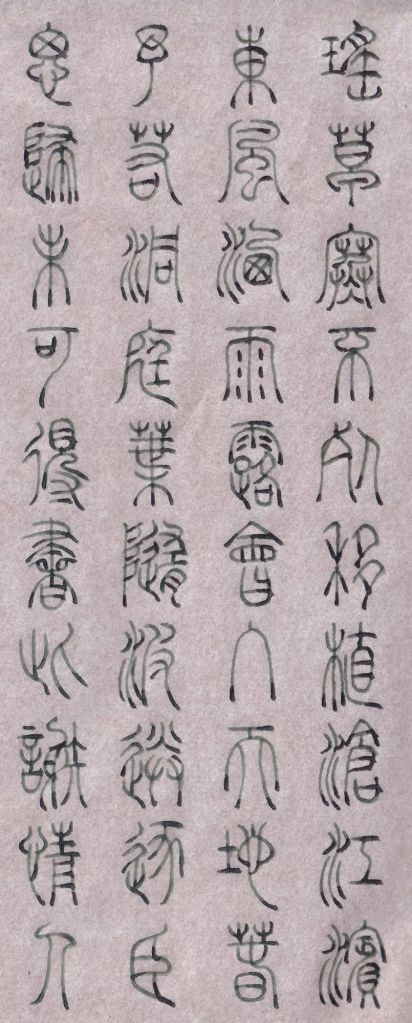 瑤草寒不死移植滄江濱
東風洒雨露會入天地春
予若洞庭葉隨波送逐臣
思歸未可得書此謝情人